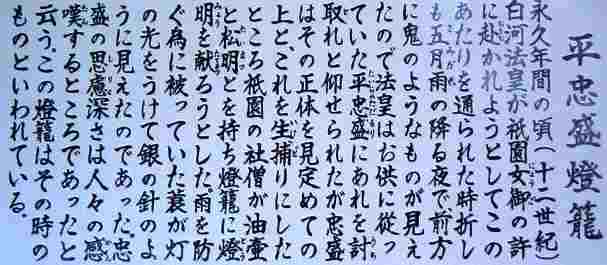 平忠盛燈籠
永久年間の頃(十二世紀)
白河法皇が祇園女御の許
に赴かれようとしてこの
あたりを通られた時折し
も五月雨の降る夜で前方
に鬼のようなものが見え
たので法皇はお供に従っ
ていた平忠盛にあれを討
取れと仰せられたが忠盛
はその正体を見定めての
上と、これを生捕りにした
ところ祇園の社僧が油壷
と松明とを持ち燈籠に燈
明を献ろうとした。雨を防
ぐ為に被っていた蓑が灯
の光をうけて銀の針のよ
うに見えたのであった。忠
盛の思慮深さは人々の感
嘆するところであったと
云う。この燈籠はその時の
ものといわれている。